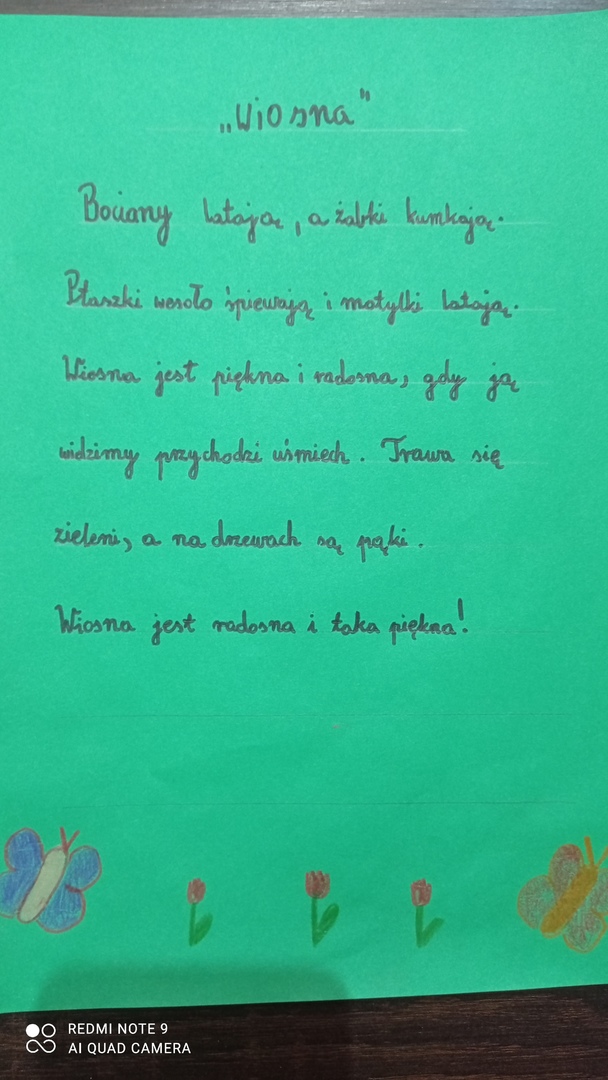 „Wiosna"
Bociany latają, a żabki kumkają.
Ptaszki wesoło śpiewają i motylki latają.
Wiosna jest piękna i radosna, gdy ją
widzimy przychodzi uśmiech. Trawa się
zieleni, a na drzewach są pąki.
Wiosna jest radosna i taka piękna!
REDMI NOTE 9
AI QUAD CAMERA